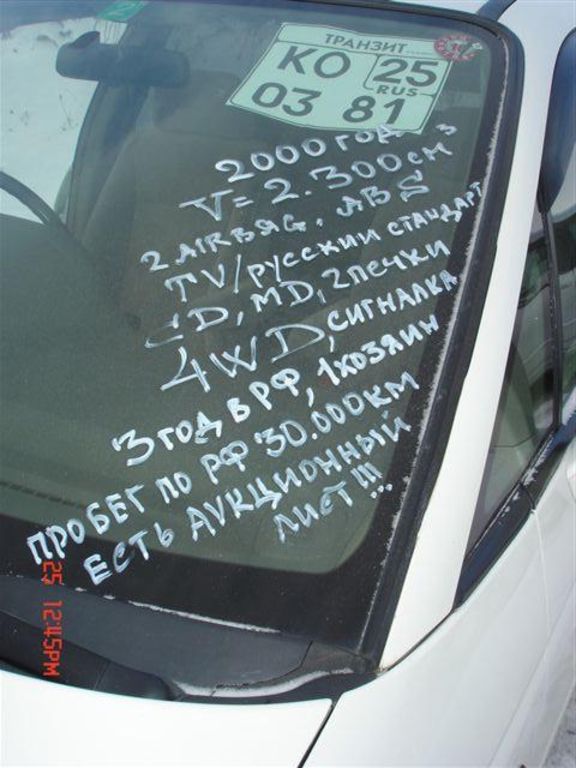 ТРАНЗИТ
КО 25
RUS
03 81
2000 ГОД
V=2.300см³
2 AIRBAG, ABS
TV/русский стандарт
CD, MD, 2 печки
4WD, сигналка
3 год в РФ, 1 хозяин
ПРОБЕГ по РФ 30.000км
ЕСТЬ АУКЦИОННЫЙ
лист!!!
25 12:45PM